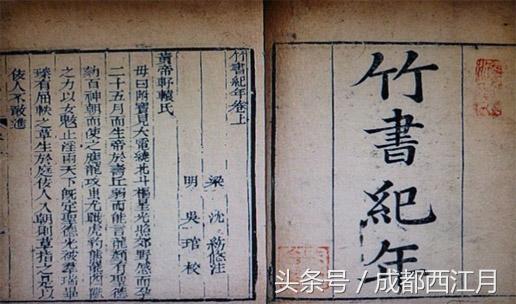 竹書紀年
竹書紀年卷上
梁 沈約修注
明 吳琯校
黃帝軒轅氏
母曰附寶見大電繞北斗樞星光照郊野感而孕
二十五月而生帝於壽丘弱而能言龍顏有聖德
劾百神朝而使之應龍攻蚩尤戰虎豹熊羆四獸
之力以女魃止淫雨天下既定聖德光被羣瑞畢
臻有屈軼之草生於庭佞人入朝則草指之是以
佞人不敢進
头条号 / 成都西江月